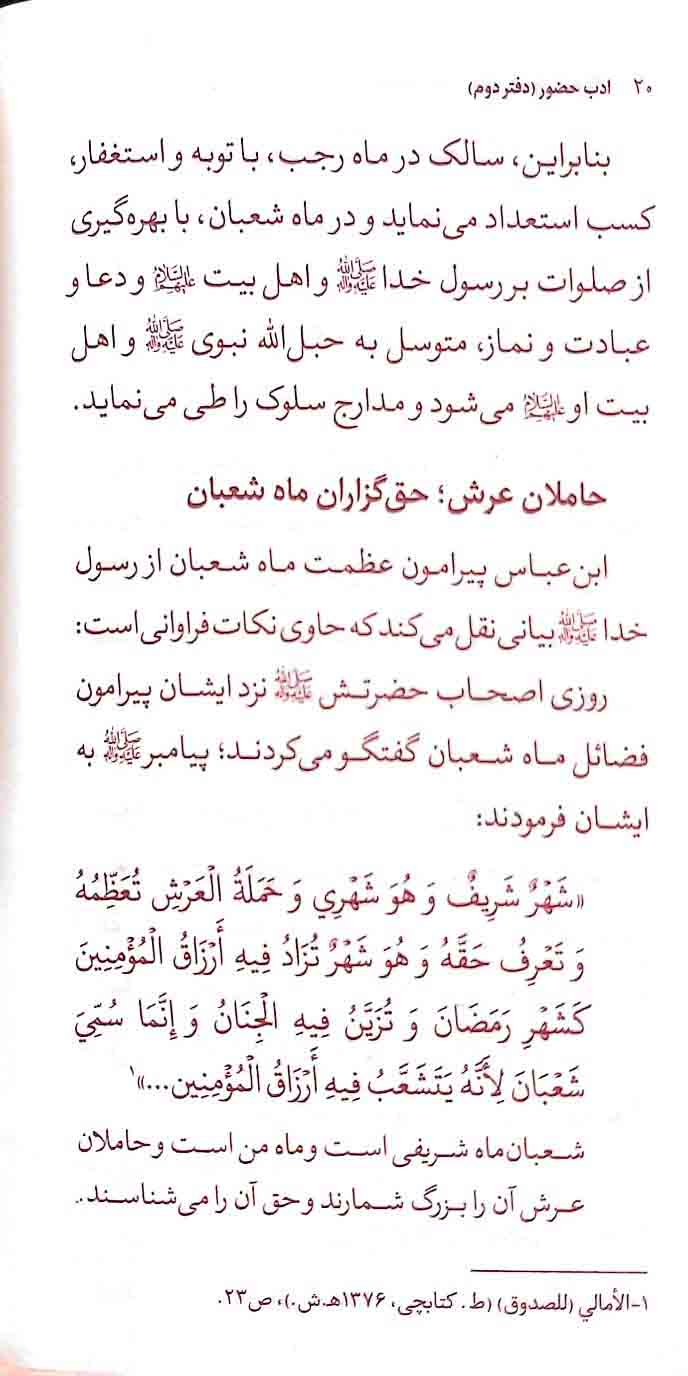 ۲۰ ادب حضور (دفتر دوم)
بنابراین، سالک در ماه رجب، با توبه و استغفار،
کسب استعداد می‌نماید و در ماه شعبان، با بهره‌گیری
از صلوات بر رسول خدا ﷺ و اهل بیت علیهم‌السلام و دعا و
عبادت و نماز، متوسل به حبل‌الله نبوی ﷺ و اهل
بیت او علیهم‌السلام می‌شود و مدارج سلوک را طی می‌نماید.
حاملان عرش؛ حق‌گزاران ماه شعبان
ابن‌عباس پیرامون عظمت ماه شعبان از رسول
خدا ﷺ بیانی نقل می‌کند که حاوی نکات فراوانی است:
روزی اصحاب حضرتش ﷺ نزد ایشان پیرامون
فضائل ماه شعبان گفتگو می‌کردند؛ پیامبر ﷺ به
ایشان فرمودند:
«شَهْرٌ شَرِيفٌ وَ هُوَ شَهْرِي وَ حَمَلَةُ الْعَرْشِ تُعَظِّمُهُ
وَ تَعْرِفُ حَقَّهُ وَ هُوَ شَهْرٌ تُزَادُ فِيهِ أَرْزَاقُ الْمُؤْمِنِينَ
كَشَهْرِ رَمَضَانَ وَ تُزَيَّنُ فِيهِ الْجِنَانُ وَ إِنَّمَا سُمِّيَ
شَعْبَانَ لِأَنَّهُ يَتَشَعَّبُ فِيهِ أَرْزَاقُ الْمُؤْمِنِين...»۱
شعبان ماه شریفی است و ماه من است و حاملان
عرش آن را بزرگ شمارند و حق آن را می‌شناسند.
۱-الأمالي (للصدوق) (ط. کتابچی، ۱۳۷۶هـ.ش.)، ص۲۳.